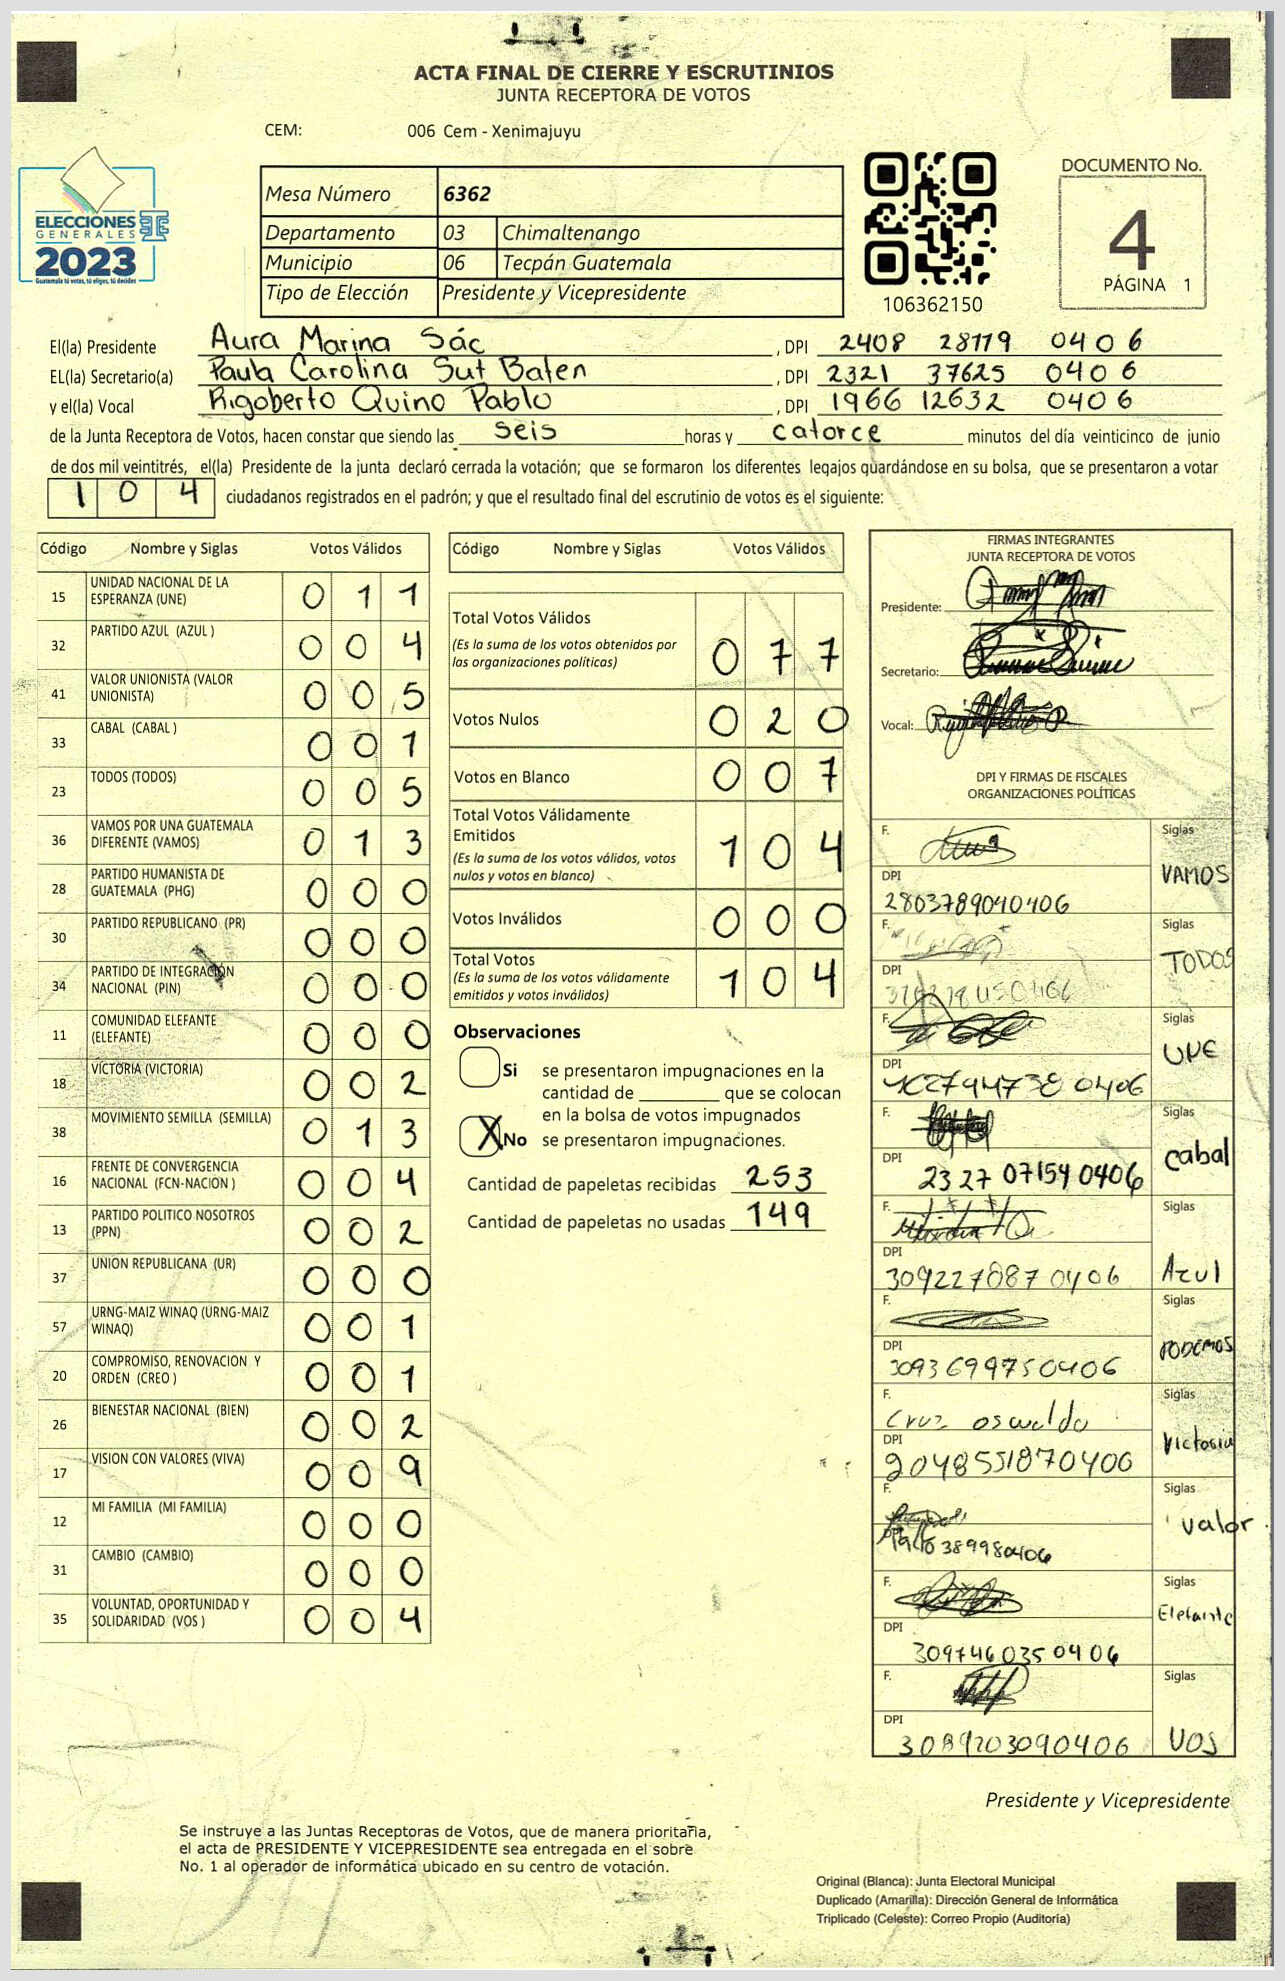 ACTA FINAL DE CIERRE Y ESCRUTINIOS
JUNTA RECEPTORA DE VOTOS
CEM: 006 Cem - Xenimajuyu
ELECCIONES
GENERALES
2023
Guatemala tú votas, tú eliges, tú decides
Mesa Número 6362
Departamento 03 Chimaltenango
Municipio 06 Tecpán Guatemala
Tipo de Elección Presidente y Vicepresidente
106362150
DOCUMENTO No.
4
PÁGINA 1
El(la) Presidente Aura Marina Sác , DPI 2408 28119 0406
EL(la) Secretario(a) Paula Carolina Sut Baten , DPI 2321 37625 0406
y el(la) Vocal Rigoberto Quino Pablo , DPI 1966 12632 0406
de la Junta Receptora de Votos, hacen constar que siendo las seis horas y catorce minutos del día veinticinco de junio
de dos mil veintitrés, el(la) Presidente de la junta declaró cerrada la votación; que se formaron los diferentes legajos quardándose en su bolsa, que se presentaron a votar
104 ciudadanos registrados en el padrón; y que el resultado final del escrutinio de votos es el siguiente:
Código Nombre y Siglas Votos Válidos
15 UNIDAD NACIONAL DE LA ESPERANZA (UNE) 0 1 1
32 PARTIDO AZUL (AZUL ) 0 0 4
41 VALOR UNIONISTA (VALOR UNIONISTA) 0 0 5
33 CABAL (CABAL ) 0 0 1
23 TODOS (TODOS) 0 0 5
36 VAMOS POR UNA GUATEMALA DIFERENTE (VAMOS) 0 1 3
28 PARTIDO HUMANISTA DE GUATEMALA (PHG) 0 0 0
30 PARTIDO REPUBLICANO (PR) 0 0 0
34 PARTIDO DE INTEGRACIÓN NACIONAL (PIN) 0 0 0
11 COMUNIDAD ELEFANTE (ELEFANTE) 0 0 0
18 VICTORIA (VICTORIA) 0 0 2
38 MOVIMIENTO SEMILLA (SEMILLA) 0 1 3
16 FRENTE DE CONVERGENCIA NACIONAL (FCN-NACION ) 0 0 4
13 PARTIDO POLITICO NOSOTROS (PPN) 0 0 2
37 UNION REPUBLICANA (UR) 0 0 0
57 URNG-MAIZ WINAQ (URNG-MAIZ WINAQ) 0 0 1
20 COMPROMISO, RENOVACION Y ORDEN (CREO ) 0 0 1
26 BIENESTAR NACIONAL (BIEN) 0 0 2
17 VISION CON VALORES (VIVA) 0 0 9
12 MI FAMILIA (MI FAMILIA) 0 0 0
31 CAMBIO (CAMBIO) 0 0 0
35 VOLUNTAD, OPORTUNIDAD Y SOLIDARIDAD (VOS ) 0 0 4
Código Nombre y Siglas Votos Válidos
Total Votos Válidos 0 7 7
(Es la suma de los votos obtenidos por
las organizaciones políticas)
Votos Nulos 0 2 0
Votos en Blanco 0 0 7
Total Votos Válidamente
Emitidos 1 0 4
(Es la suma de los votos válidos, votos
nulos y votos en blanco)
Votos Inválidos 0 0 0
Total Votos 1 0 4
(Es la suma de los votos válidamente
emitidos y votos inválidos)
Observaciones
Si se presentaron impugnaciones en la
cantidad de ________ que se colocan
en la bolsa de votos impugnados
X No se presentaron impugnaciones.
Cantidad de papeletas recibidas 253
Cantidad de papeletas no usadas 149
FIRMAS INTEGRANTES
JUNTA RECEPTORA DE VOTOS
Presidente:
Secretario:
Vocal:
DPI Y FIRMAS DE FISCALES
ORGANIZACIONES POLÍTICAS
F. Siglas VAMOS
DPI 2803789040406
F. Siglas TODOS
DPI
F. Siglas UNE
DPI
F. Siglas Cabal
DPI 2327 07154 0406
F. Siglas Azul
DPI 309227887 0406
F. Siglas PODEMOS
DPI 3093699750406
F. Cruz oswaldo Siglas Victoria
DPI 2048551870406
F. Siglas Valor
F. Siglas Elefante
DPI 309746035 0406
F. Siglas VOS
DPI 3089203090406
Presidente y Vicepresidente
Se instruye a las Juntas Receptoras de Votos, que de manera prioritaria,
el acta de PRESIDENTE Y VICEPRESIDENTE sea entregada en el sobre
No. 1 al operador de informática ubicado en su centro de votación.
Original (Blanca): Junta Electoral Municipal
Duplicado (Amarilla): Dirección General de Informática
Triplicado (Celeste): Correo Propio (Auditoría)